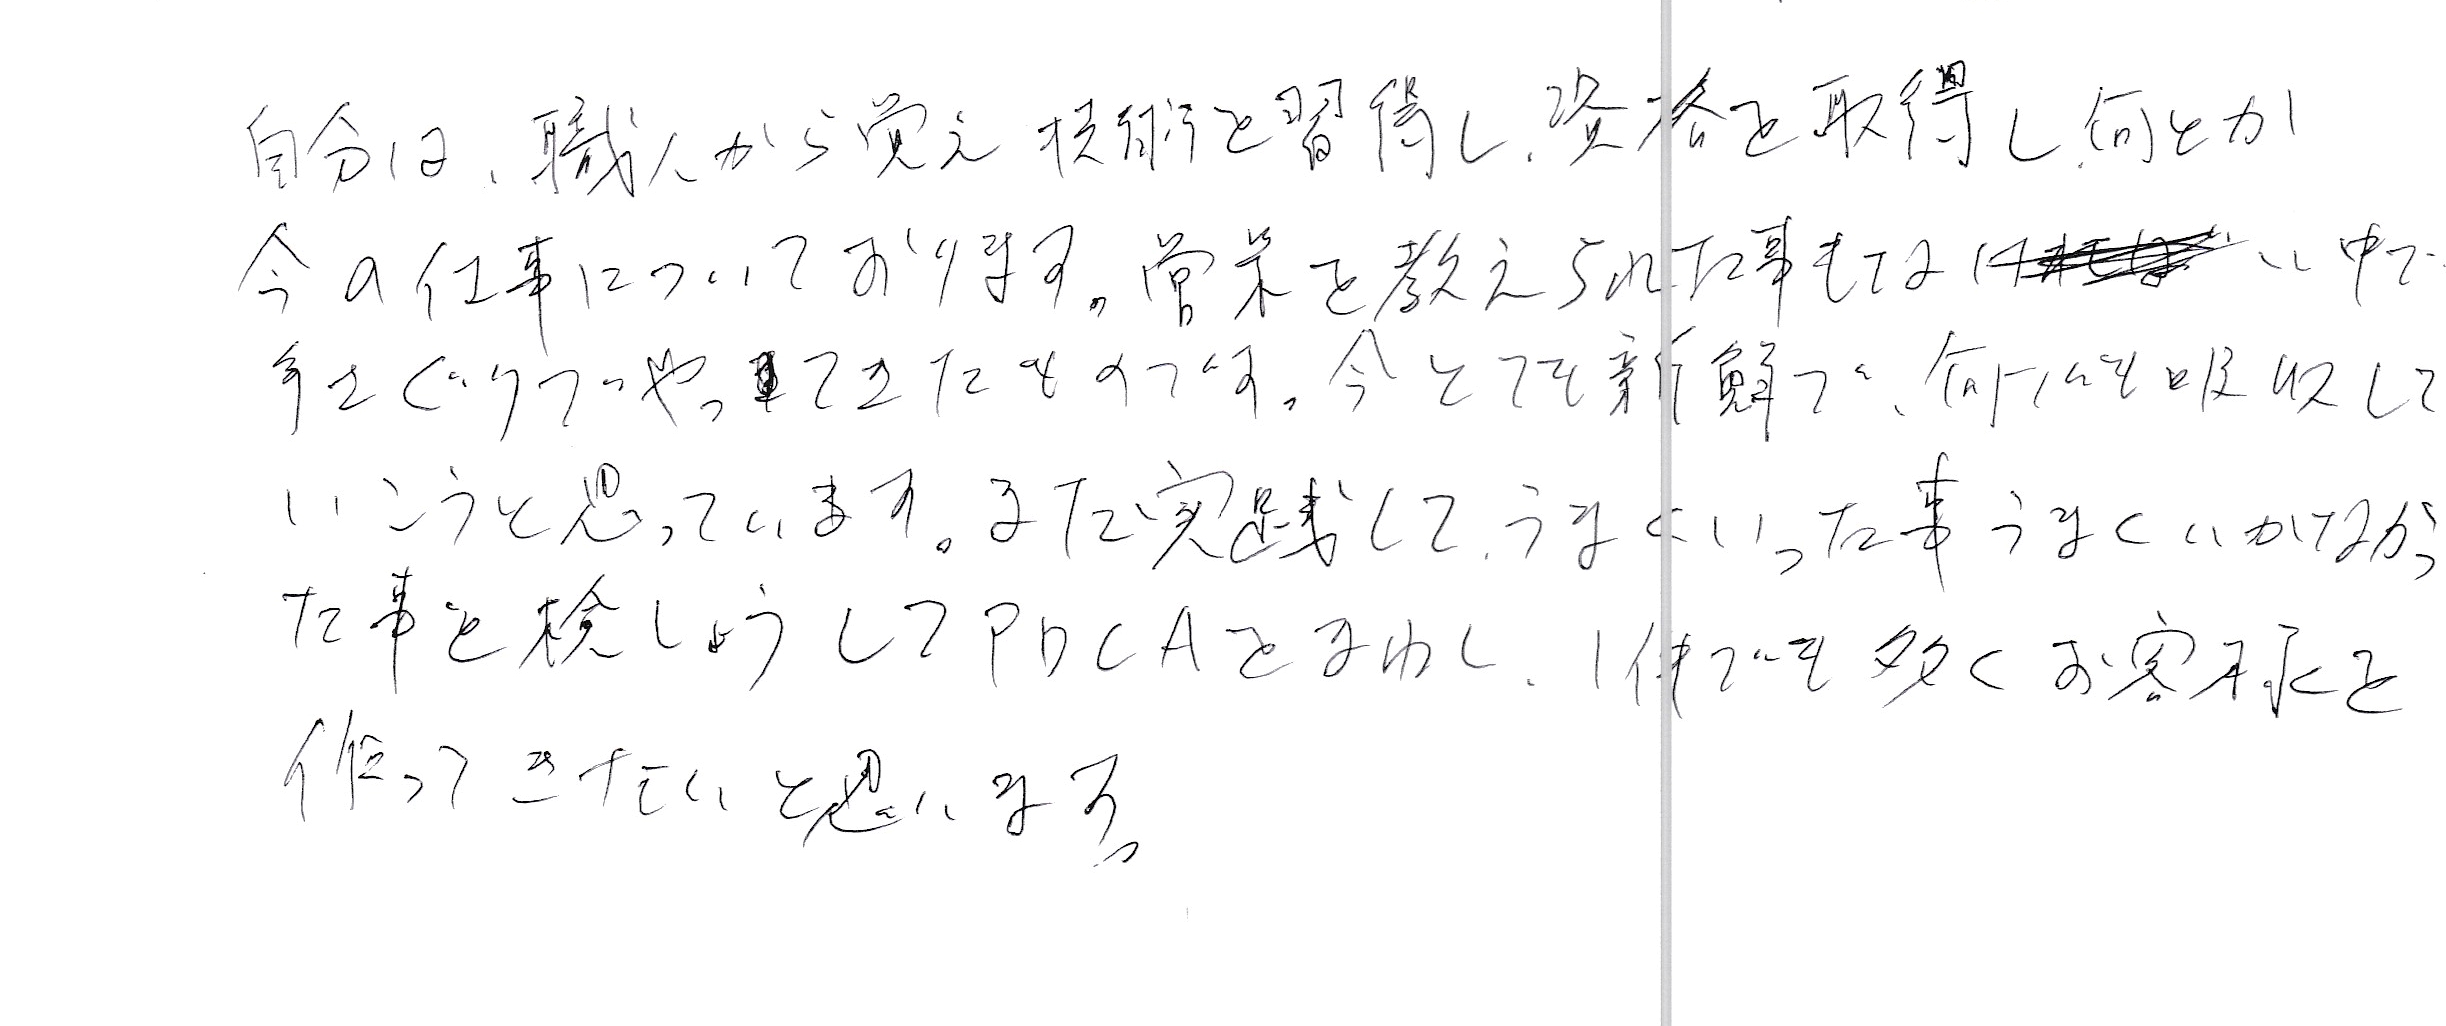 自分は、職人から覚え技術を習得し、資格を取得し、何とか
今の仕事についております。営業を教えられた事もない中で
手さぐりでやってきたものです。今とても新鮮で、何でも吸収して
いこうと思っています。また実践して、うまくいった事うまくいかなかっ
た事を検しょうしてPDCAをまわし、1件でも多くお客様を
作ってきたいと思います。